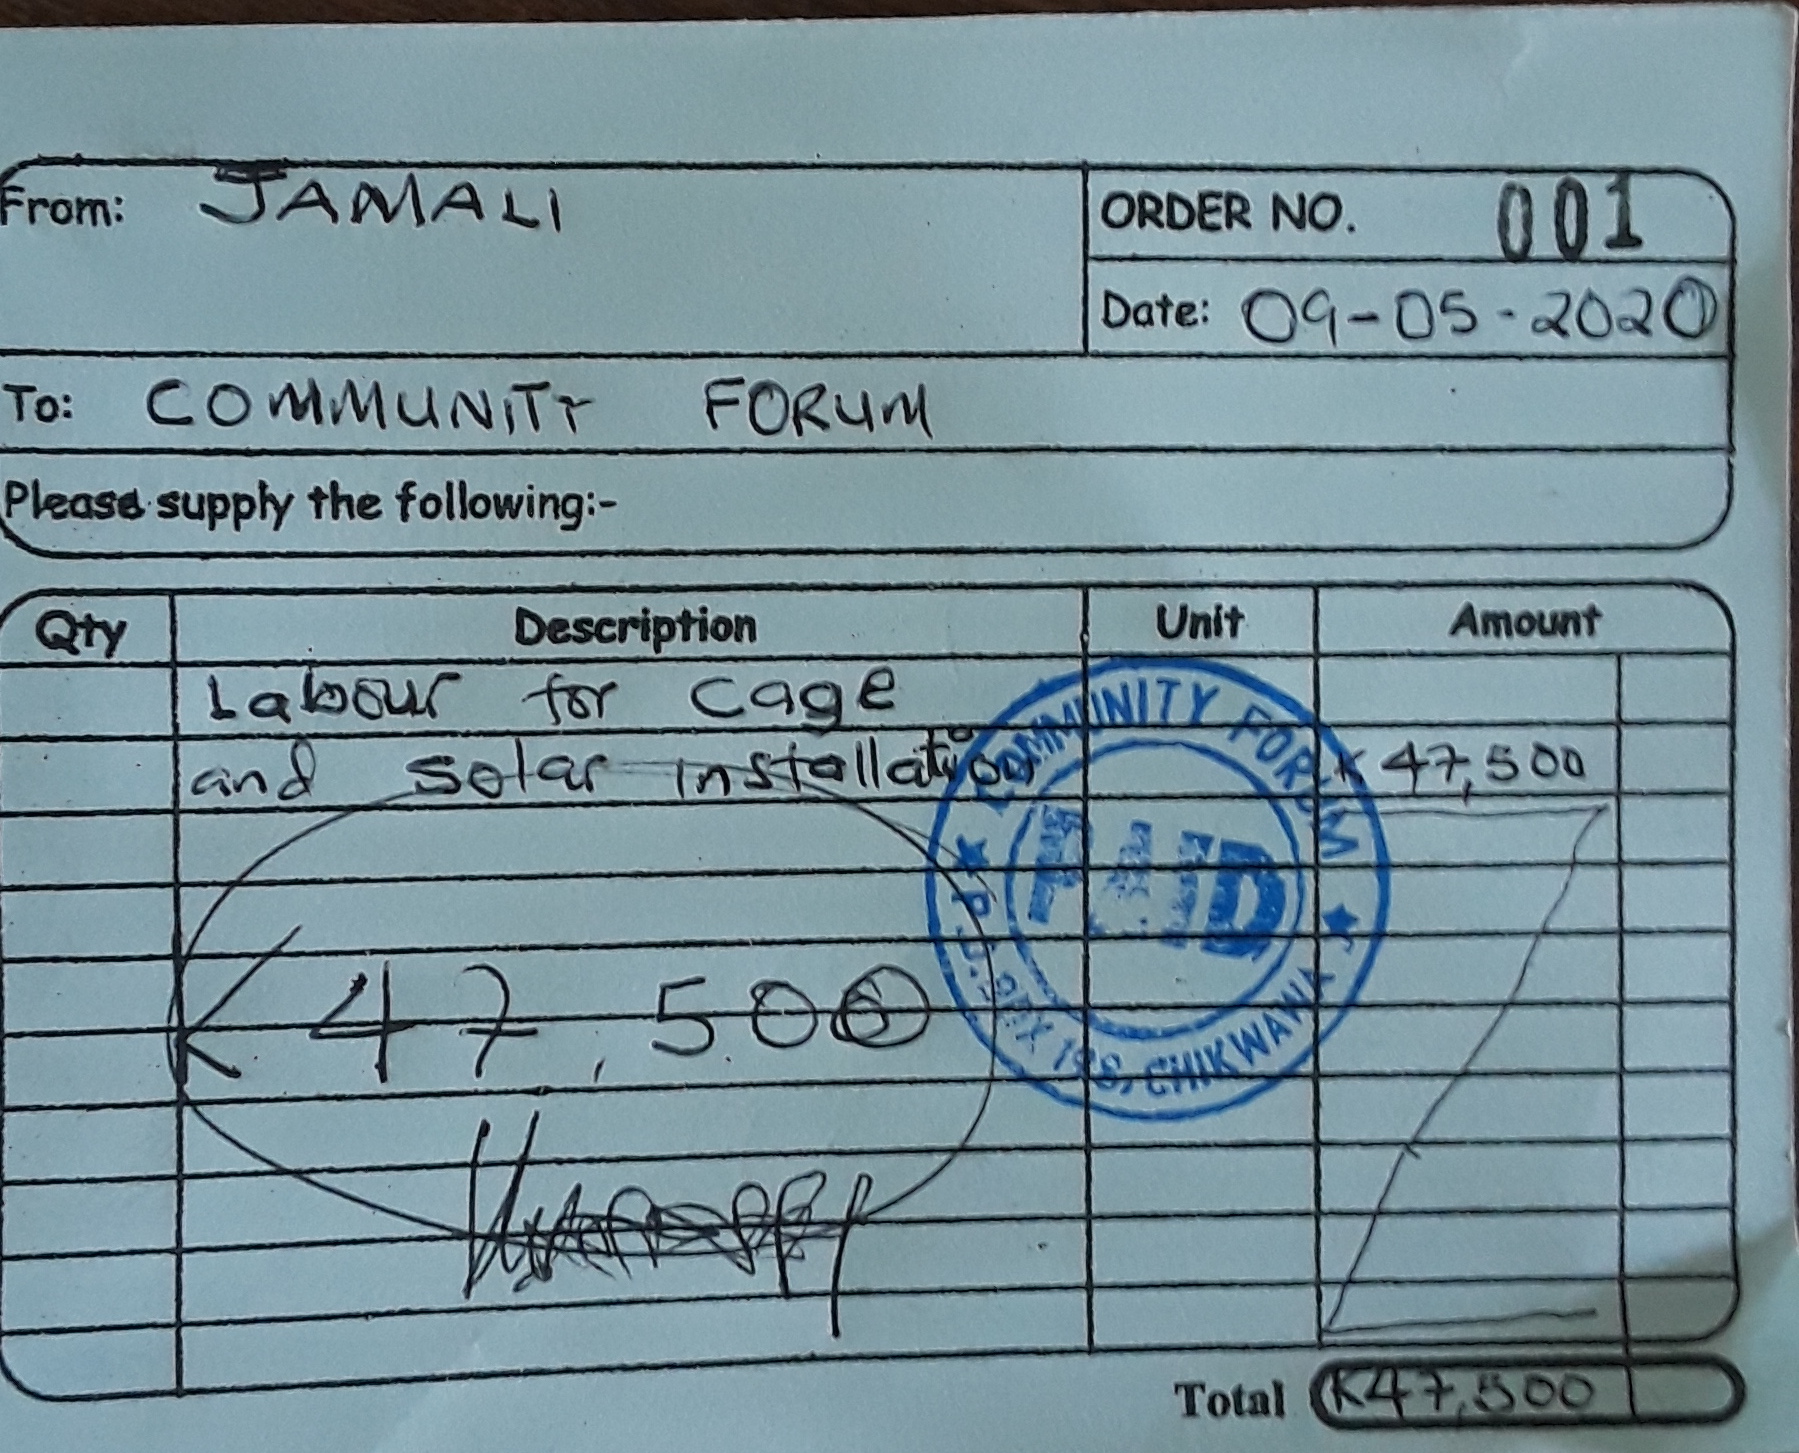 From: JAMALI
ORDER NO. 001
Date: 09-05-2020
To: COMMUNITY FORUM
Please supply the following:-
Qty Description Unit Amount
Labour for cage
and solar installation K 47,500
COMMUNITY FORUM
PAID
CHIKWAWA
K 47,500
Total K47,500